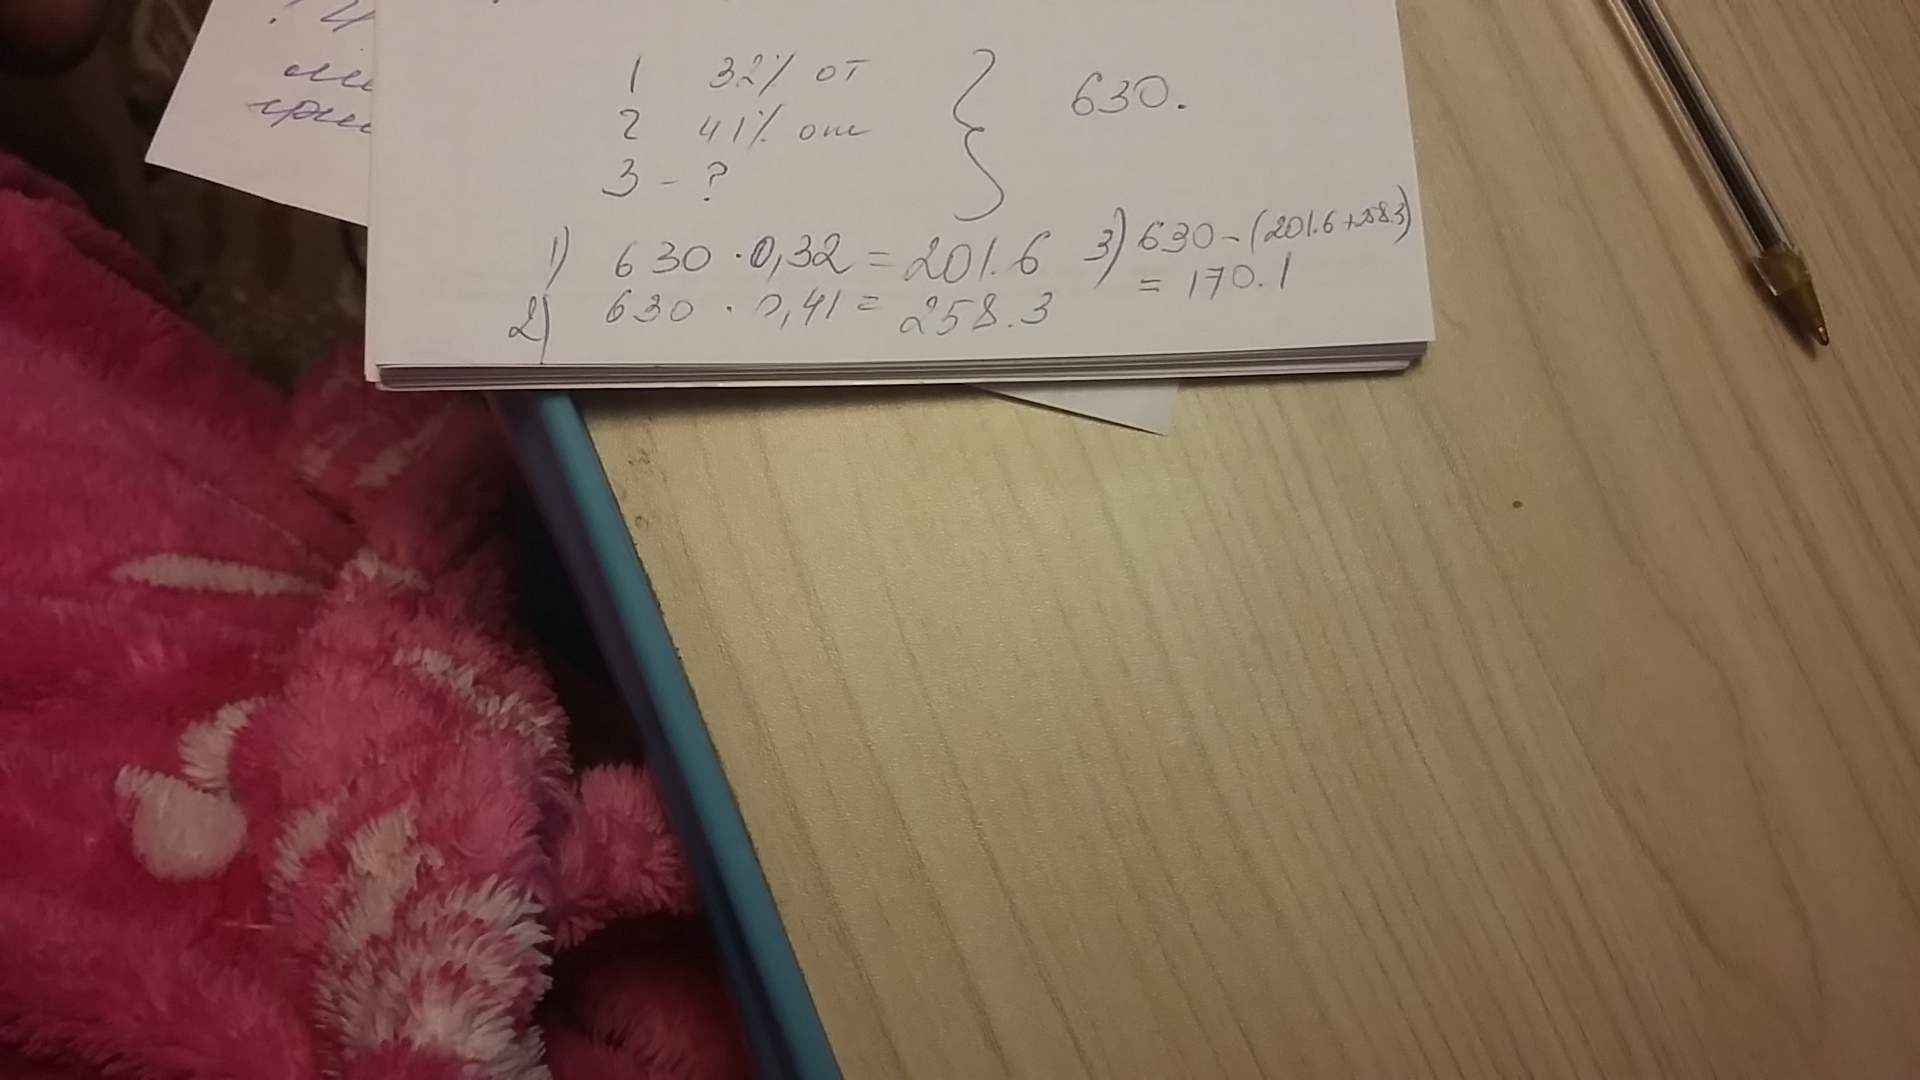 1 32% от
2 41% от
3 - ?
630.
1) 630 · 0,32 = 201.6
2) 630 · 0,41 = 258.3
3) 630 - (201.6 + 258.3)
= 170.1